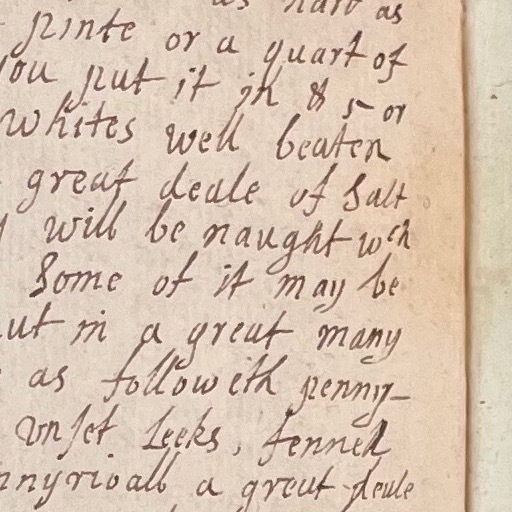 as hard as
pinte or a quart of
you put it in & 5 or
whites well beaten
great deale of salt
will be naught wch
some of it may be
in a great many
as followeth penny-
vnset Leeks, fennell
a great deale